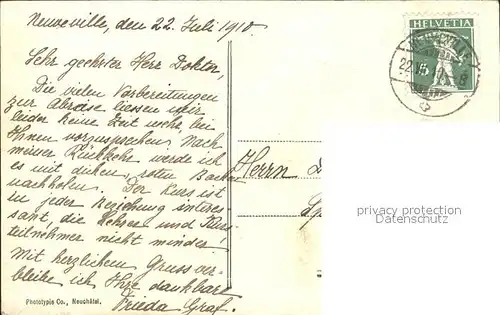 Neuveville, den 22. Juli 1910
Sehr geehrter Herr Doktor,
Die vielen Vorbereitungen
zur Abreise liessen mir
leider keine Zeit mehr, bei
Ihnen vorzusprechen. Nach
meiner Rückkehr werde ich
es mit dicken, roten Backen
nachholen. Der Kurs ist
in jeder Beziehung interes-
sant, die Lehrer und Kurs-
teilnehmer nicht minder!
Mit herzlichem Gruss ver-
bleibe ich Ihre dankbare
Frieda Graf.
Phototypie Co., Neuchâtel.
HELVETIA
5
Herrn
privacy protection
DARUVAR.COM